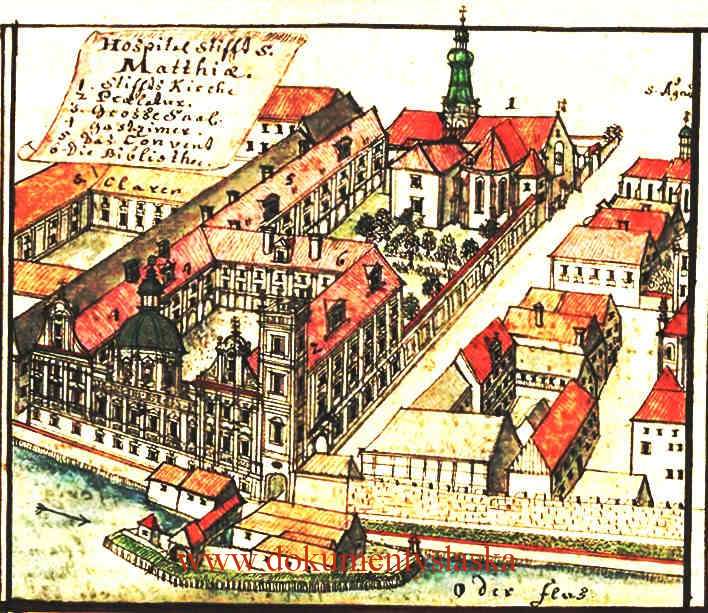 Hospitel stifft S.
Matthiæ.
1. Stiffts Kirche
2. Prælatur.
3. Grosse Saal.
4. Gastzimer.
5. Das Convent
6. die Bibliothec.
S. Claren
1
S. Agn
5
4
6
3
2
www.dokumentyslaska
Oder flus